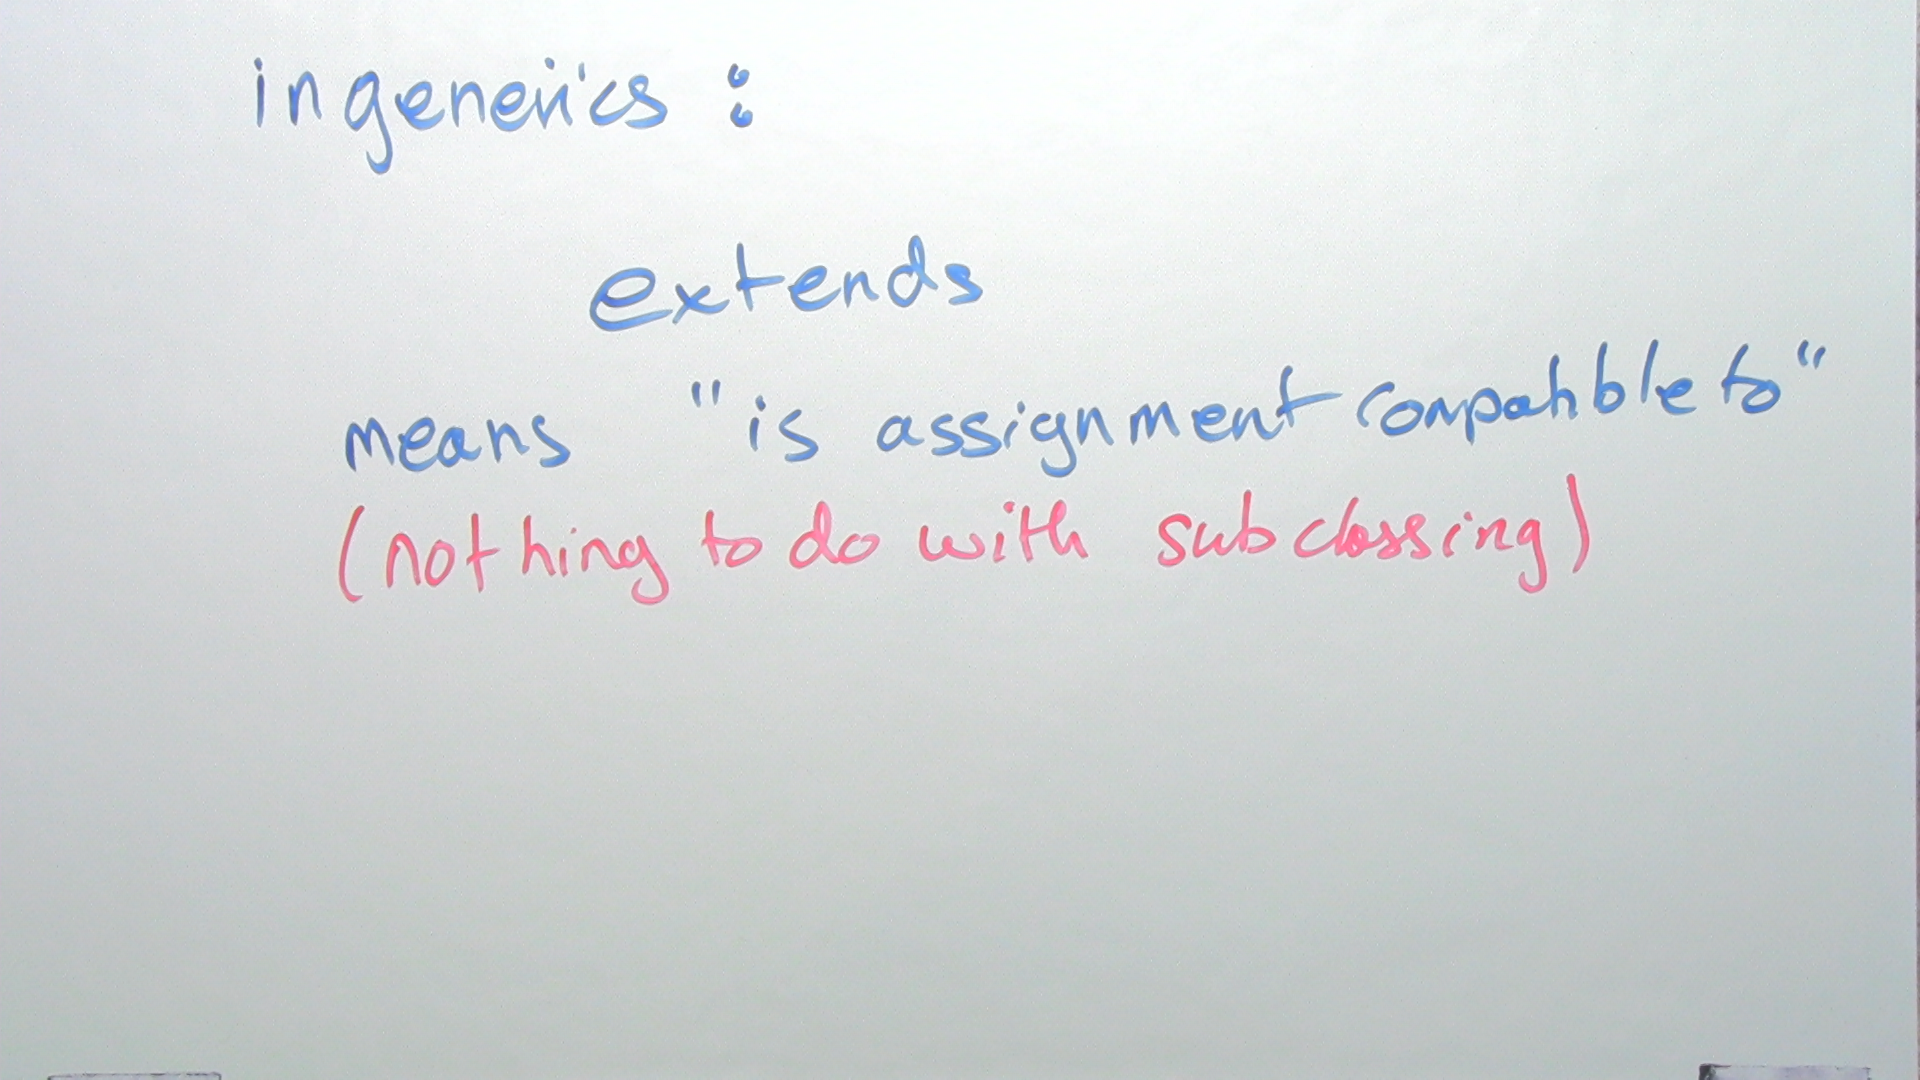 in generics :
extends
means "is assignment compatible to"
(nothing to do with subclassing)